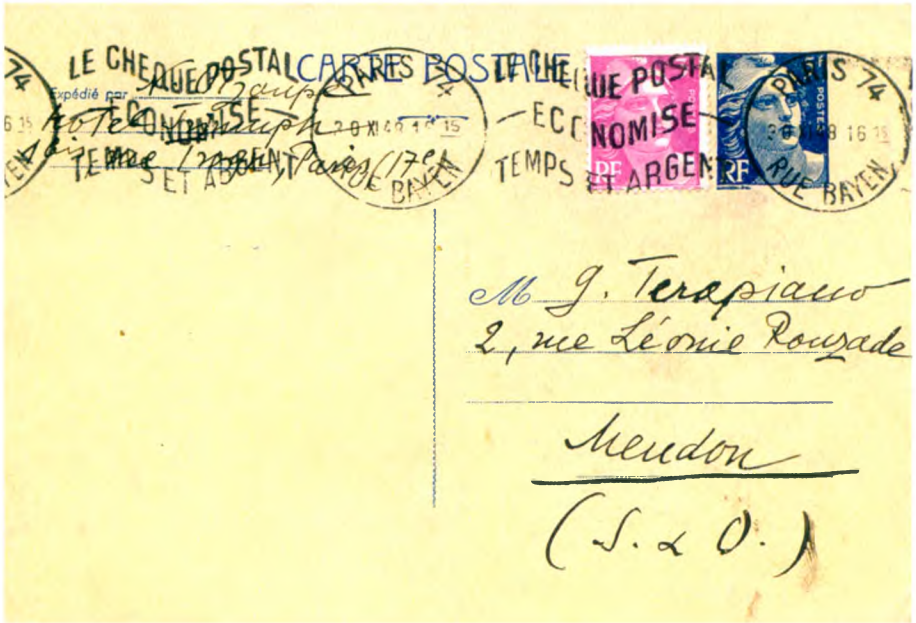 LE CHEQUE POSTAL
ECONOMISE
TEMPS ET ARGENT
CARTE POSTALE
PARIS 74
RUE BAYEN
LE CHEQUE POSTAL
ECONOMISE
TEMPS ET ARGENT
RF
POSTES
RF
PARIS 74
16 15
RUE BAYEN
74
Expédié par
Hotel
rue Paris (17e)
M G. Terapiano
2, rue Léonie Rouzade
Meudon
(S. & O.)